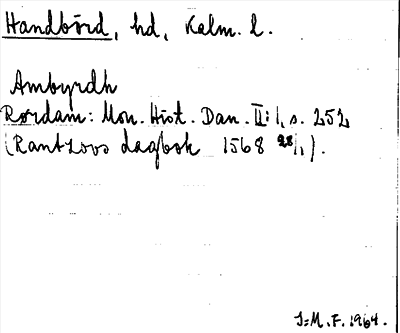 Handbörd, hd, Kalm. l.
Ambyrdh
Rørdam: Mon. Hist. Dan. II:1, s. 252
(Rantzovs dagbok 1568 28/1).
I-M. F. 1964.